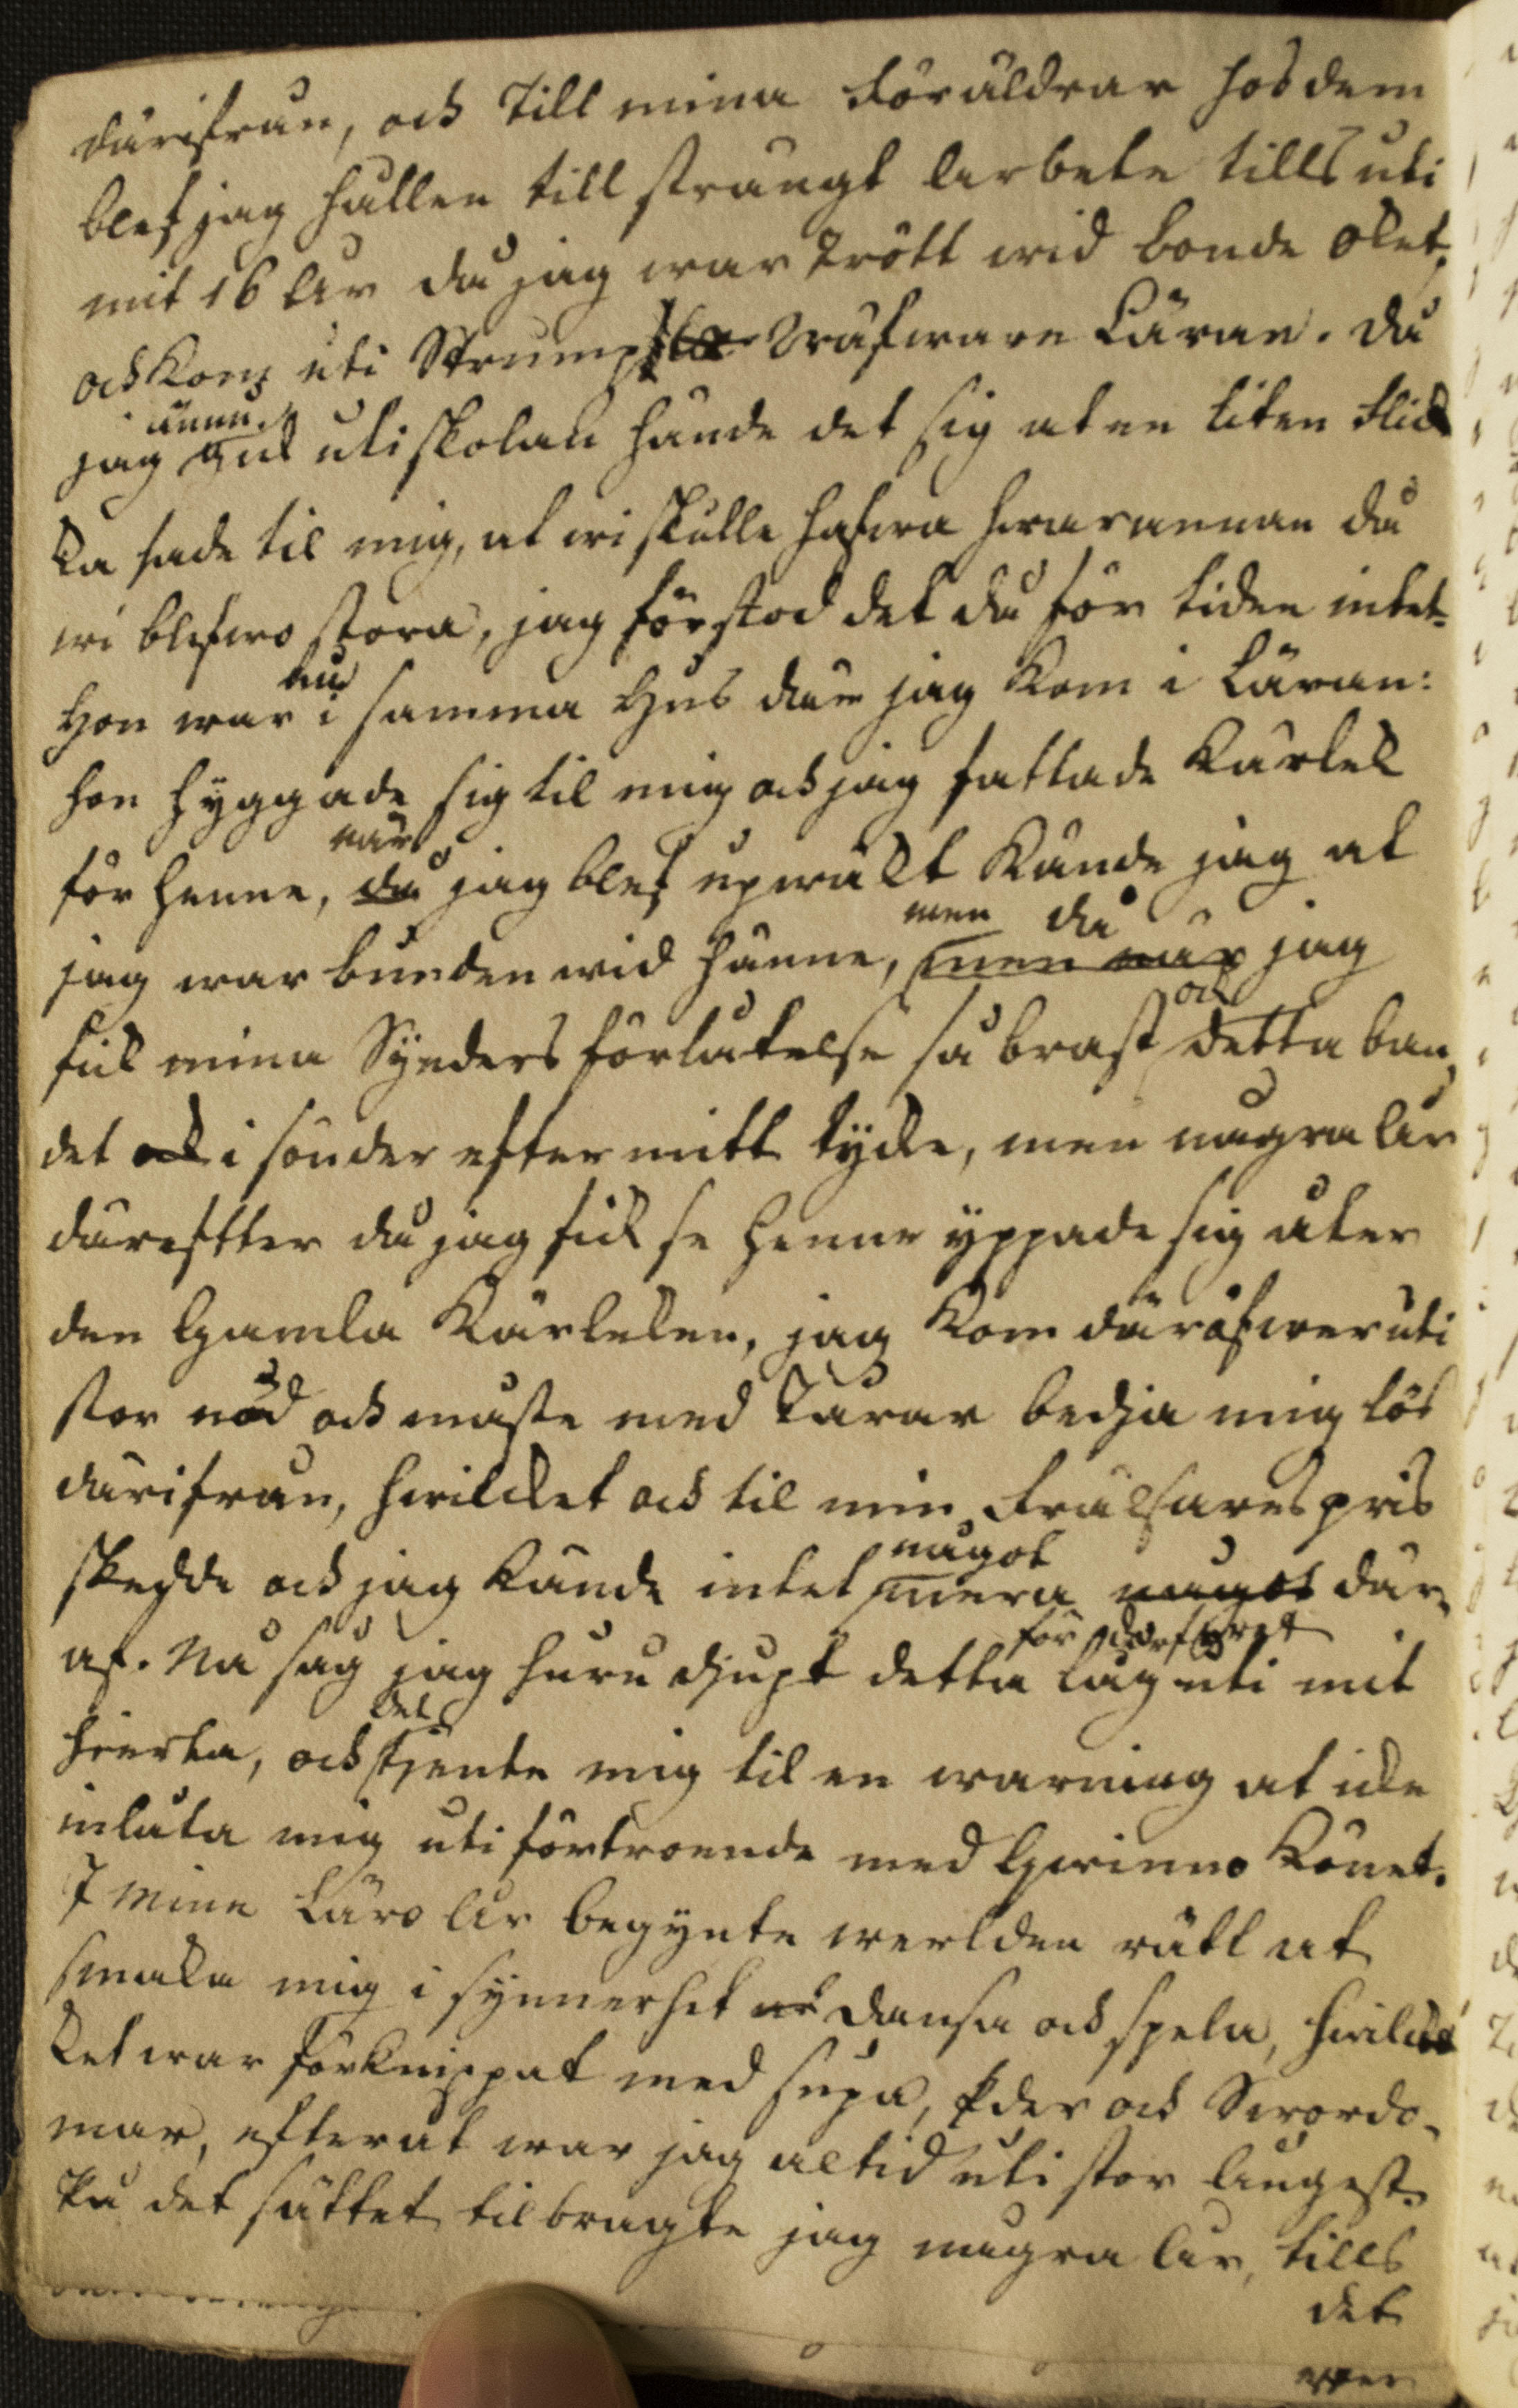 därifrån, och Till mina Föräldrar hos dem
blef jag hållen till strängt Arbete tills uti
mit 16 År då jag war Trött wid bonde oket,
och Kom uti Strump Wäfware Läran. Då
ännu
jag gik uti skolan hände det sig at en liten flic
ka sade til mig, at wi skulle hafwa hwarannan då
wi blefwo stora, jag förstod det då för tiden intet.
nu
Hon war i samma Hus där jag Kom i Läran:
hon hyggade sig til mig och jag fattade Kärlek
när
för henne, då jag blef upwäkt Kände jag at
men då
jag war bunden wid hänne, men när jag
och
fik mina Synders förlåtelse så brast detta ban,
det ok i sönder efter mitt tycke, men några År
däreftter då jag fick se henne yppade sig åter
den Gamla Kärleken, jag Kom däröfwer uti
stor nöd och måste med Tårar bedja mig lös
därifrån, hwilcket och til min Frälsares pris
något
skedde och jag Kände intet mera något där,
för fördärfwet
af. Nu såg jag huru djupt detta låg uti mit
det
hierta, och tjente mig til en warning at icke
inlåta mig uti förtroende med Qwinno Könet.
I mine Läro År begynte werlden rätt at
smaka mig i synnerhet at dansa och spela, hwilc
ket war förknippat med supa, Eder och Swordo-
mar, efteråt war jag altid uti stor Ångest.
På det sättet tilbragte jag några År, tills
det